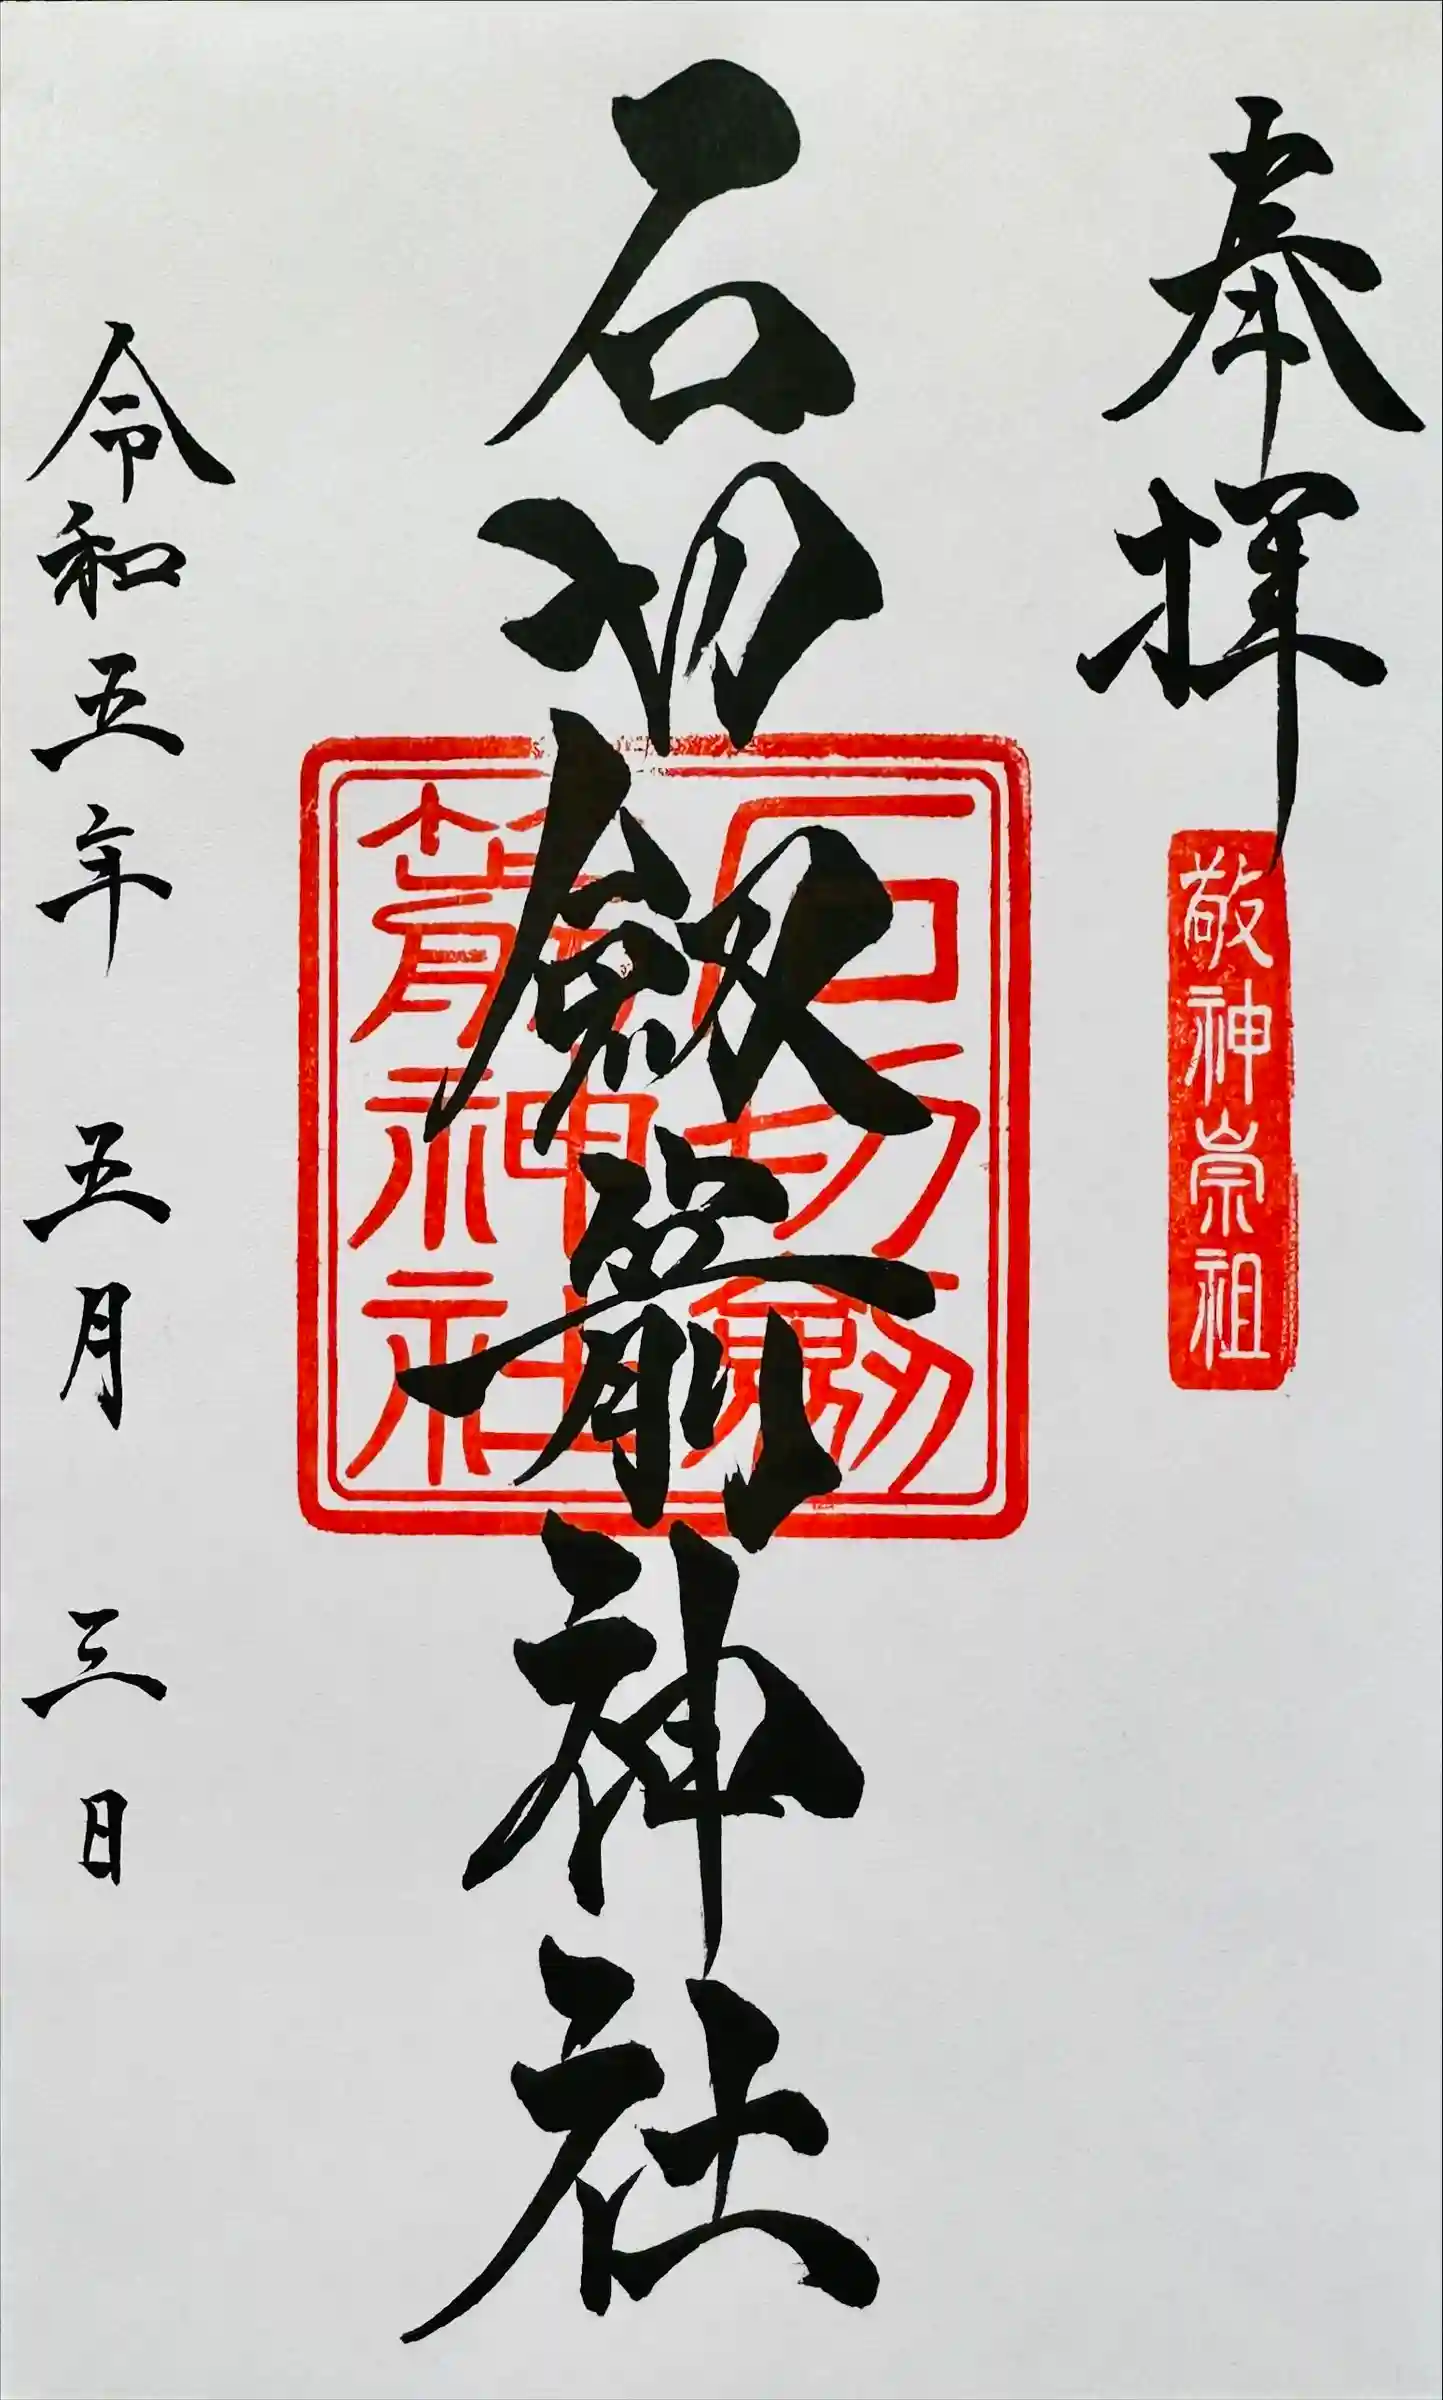 奉拝
敬神崇祖
石切劔箭神社
石切劔
箭神社
令和五年 五月 三日